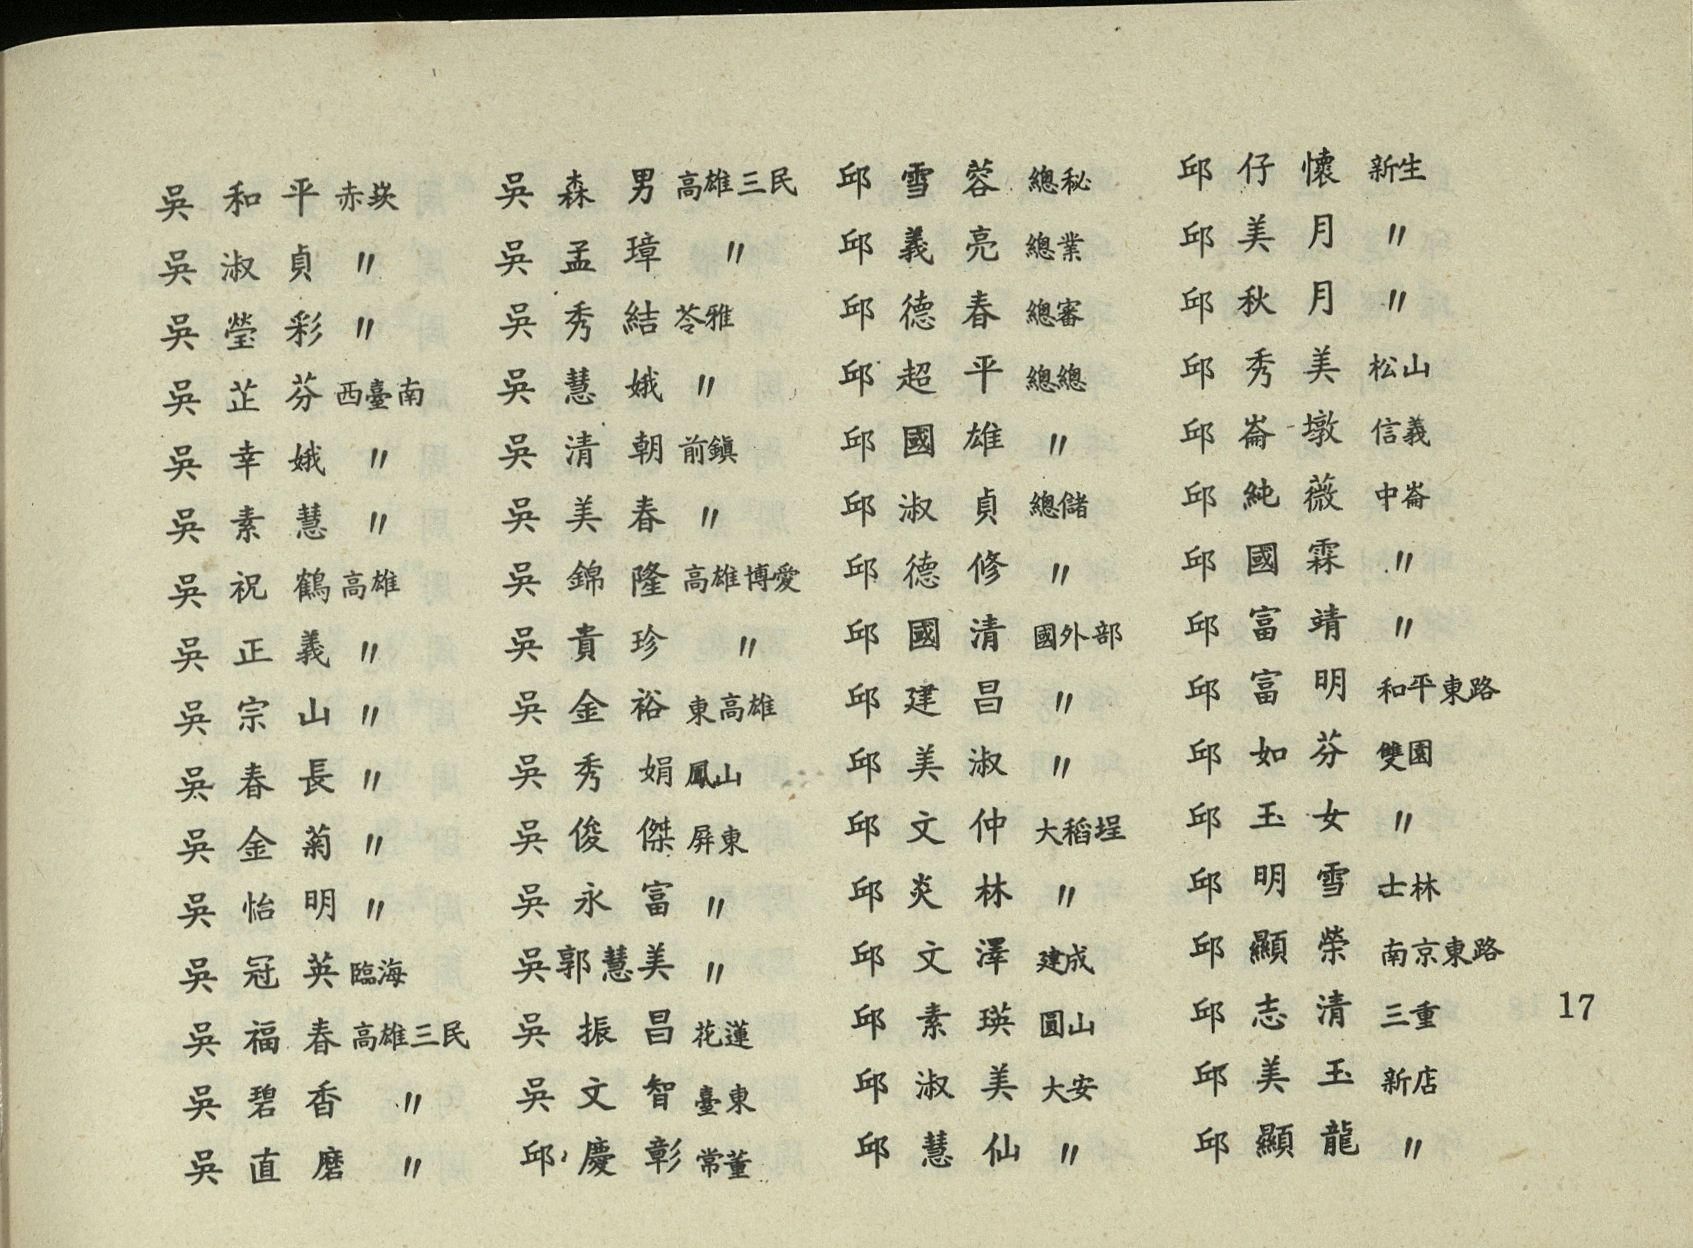 吳和平 赤崁
吳淑貞 〃
吳瑩彩 〃
吳芷芬 西臺南
吳幸娥 〃
吳素慧 〃
吳祝鶴 高雄
吳正義 〃
吳宗山 〃
吳春長 〃
吳金菊 〃
吳怡明 〃
吳冠英 臨海
吳福春 高雄三民
吳碧香 〃
吳直磨 〃
吳森男 高雄三民
吳孟璋 〃
吳秀結 苓雅
吳慧娥 〃
吳清朝 前鎮
吳美春 〃
吳錦隆 高雄博愛
吳貴珍 〃
吳金裕 東高雄
吳秀娟 鳳山
吳俊傑 屏東
吳永富 〃
吳郭慧美 〃
吳振昌 花蓮
吳文智 臺東
邱慶彰 常董
邱雪蓉 總秘
邱義亮 總業
邱德春 總審
邱超平 總總
邱國雄 〃
邱淑貞 總儲
邱德修 〃
邱國清 國外部
邱建昌 〃
邱美淑 〃
邱文仲 大稻埕
邱炎林 〃
邱文澤 建成
邱素瑛 圓山
邱淑美 大安
邱慧仙 〃
邱仔懷 新生
邱美月 〃
邱秋月 〃
邱秀美 松山
邱崙墩 信義
邱純薇 中崙
邱國霖 〃
邱富靖 〃
邱富明 和平東路
邱如芬 雙園
邱玉女 〃
邱明雪 士林
邱顯榮 南京東路
邱志清 三重
邱美玉 新店
邱顯龍 〃
17